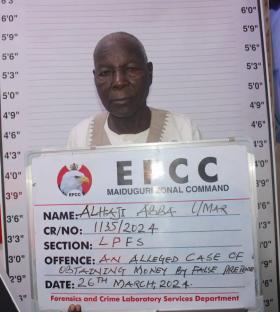 6'0"
5'9"
5'6"
5'3"
5'0"
4'9"
4'6"
4'3"
4'0"
3'9"
3'6"
EFCC
MAIDUGURI ZONAL COMMAND
NAME: ALHAJI ABBA UMAR
CR/NO: 1135/2024
SECTION: LPFS
OFFENCE: AN ALLEGED CASE OF
OBTAINING MONEY BY FALSE PRETENCE
DATE: 26TH MARCH, 2024
Forensics and Crime Laboratory Services Department